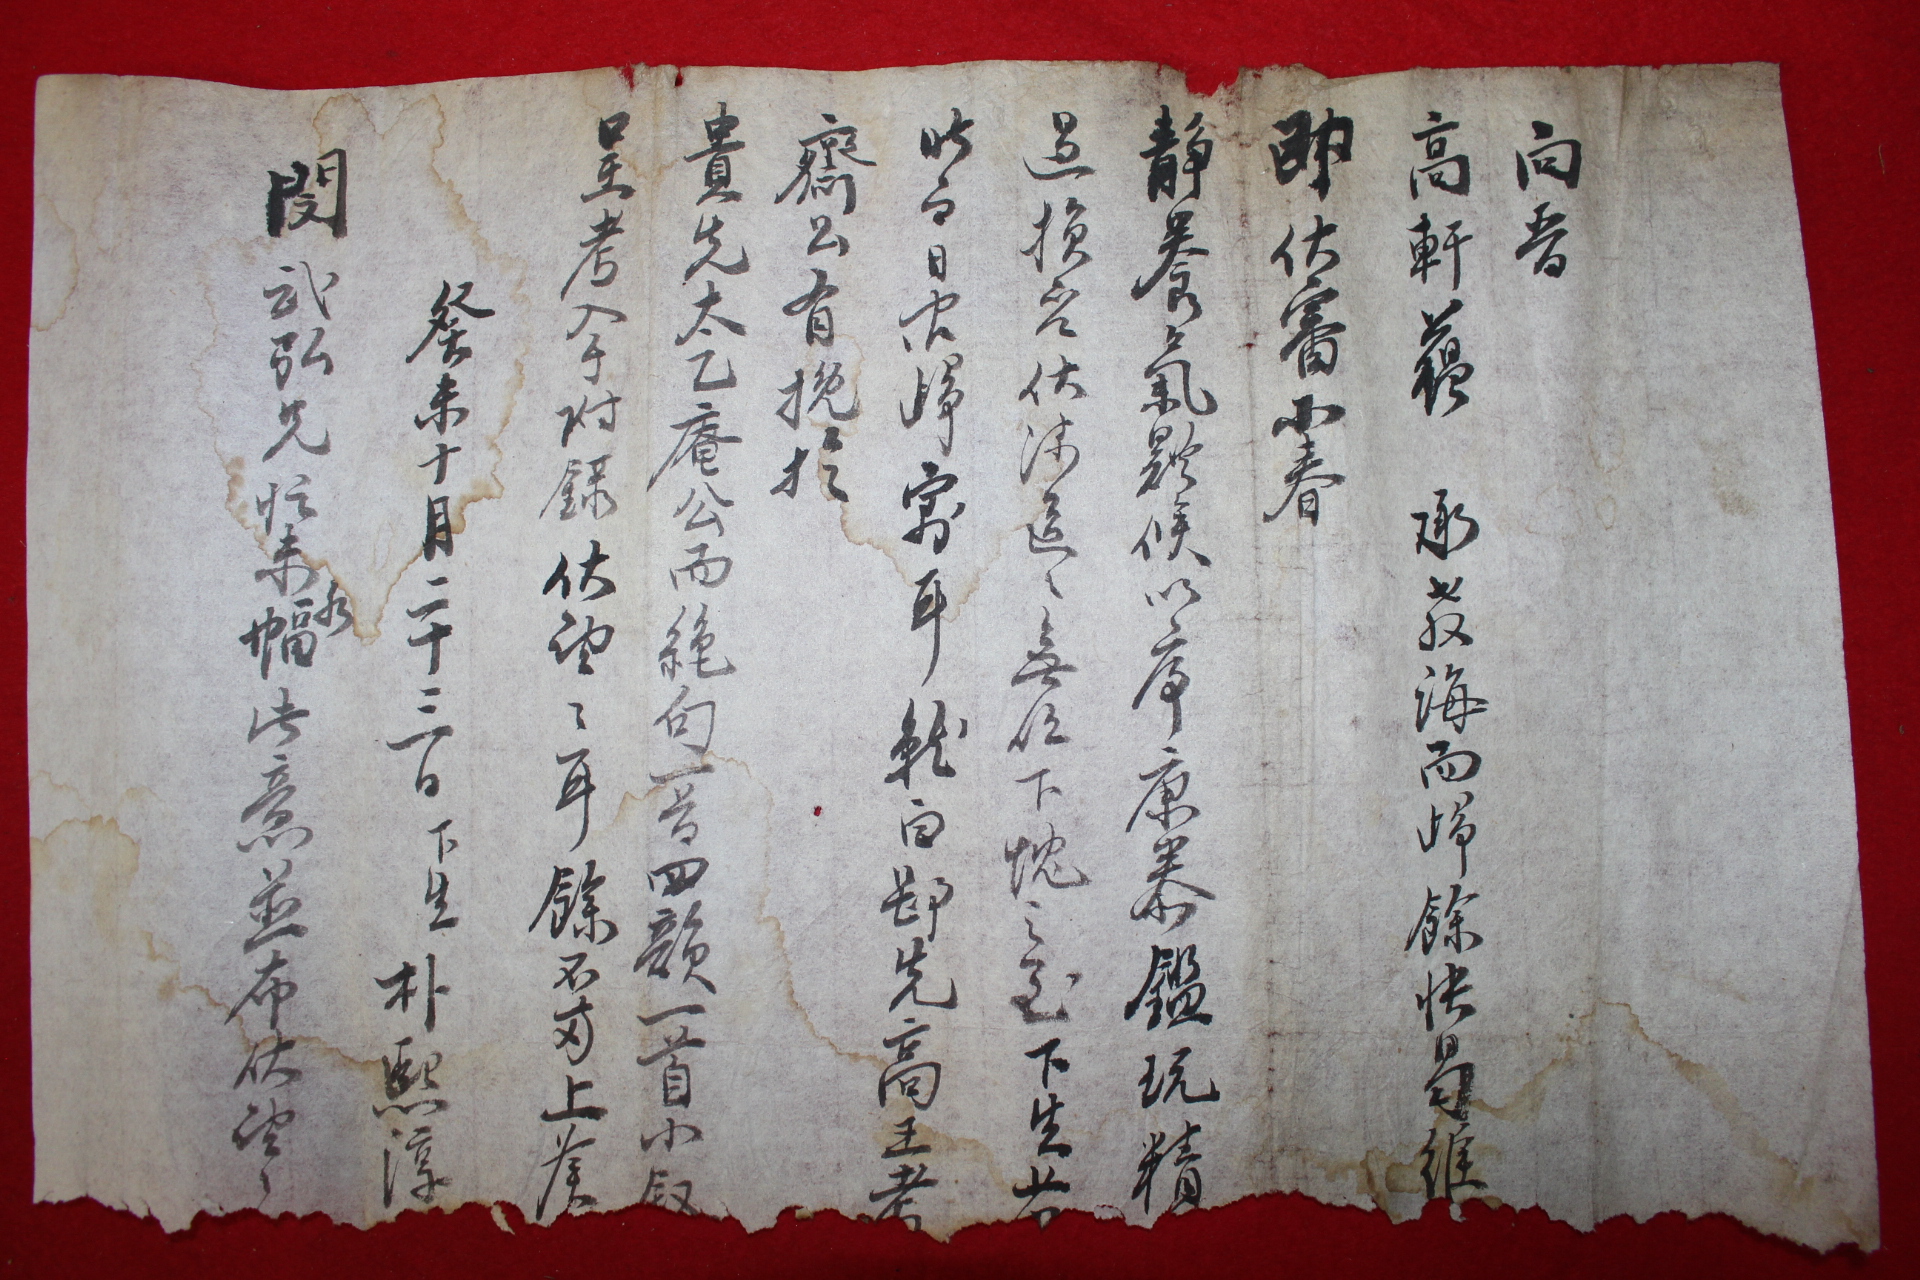 向晋
高軒蘊 承教誨而歸餘悵曷維
卽伏審小春
靜養氣體候以序康泰鑑玩精
過損否伏溸區〻無任下愧之至下生昔
昨日歸寓耳就白鄙先高王考
齋公有挽於
貴先太乙庵公而絶句一首四韻一首小叙
呈考入于附錄伏望〻耳餘不宣上候
癸未十月二十三日 下生 朴熙淳
閔武弘兄忙未各幅此意並布伏望〻